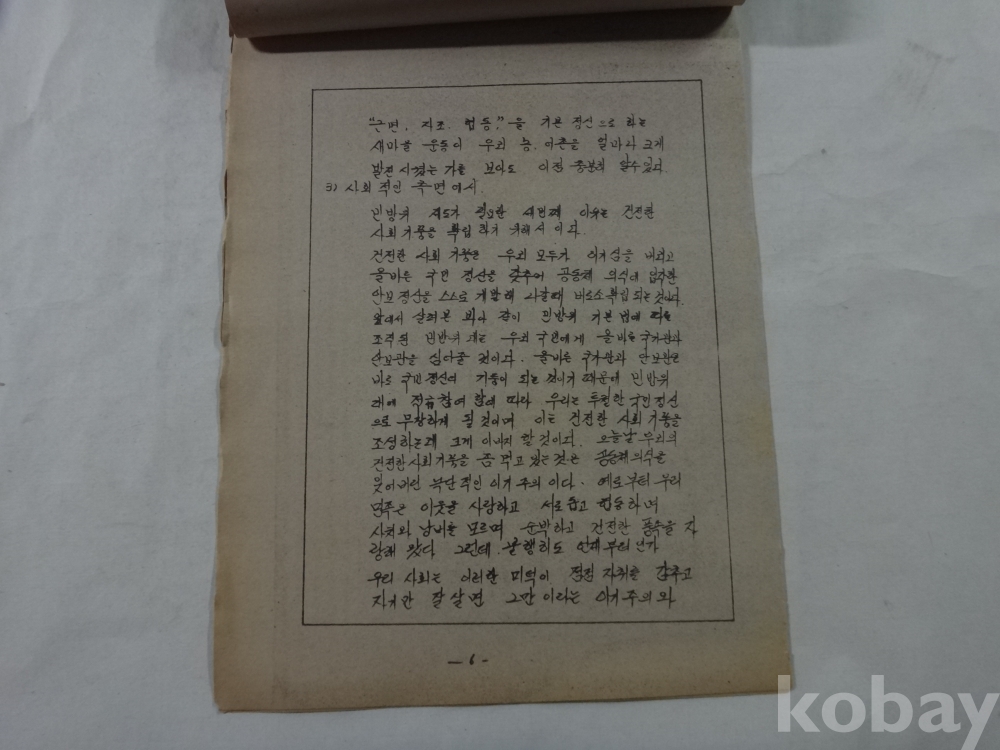 "근면, 자조, 협동,"을 기본 정신으로 하는
새마을 운동이 우리 농, 어촌을 얼마나 크게
발전 시켰는가를 보아도 이점 충분히 알수있다.
3) 사회적인 측면에서.
민방위 제도가 필요한 세번째 이유는 건전한
사회기풍을 확립 하기 위해서 이다.
건전한 사회 기풍은 우리 모두가 이기심을 버리고
올바른 국민 정신을 갖추어 공동체 의식에 입각한
안보정신을 스스로 개발해 나갈때 비로소 확립 되는것이다.
앞에서 살펴본 바와 같이 민방위 기본법에 따라
조직된 민방위대는 우리 국민에게 올바른 국가관과
안보관을 심어줄 것이다. 올바른 국가관과 안보관은
바로 국민정신의 기둥이 되는 것이기 때문에 민방위
대에 적극참여 함에 따라 우리는 투철한 국민정신
으로 무장하게 될것이며 이는 건전한 사회기풍을
조성하는데 크게 이바지 할것이다. 오늘날 우리의
건전한사회기풍을 좀먹고 있는것은 공동체의식을
잊어버린 극단적인 이기주의 이다. 예로부터 우리
민족은 이웃을 사랑하고 서로돕고 협동하며
사치와 낭비를 모르며 순박하고 건전한 풍속을 자
랑해 왔다 그런데 불행히도 언제부터 인가
우리 사회는 이러한 미덕이 점점 자취를 감추고
자기만 잘살면 그만이라는 이기주의와
- 6 -
kobay